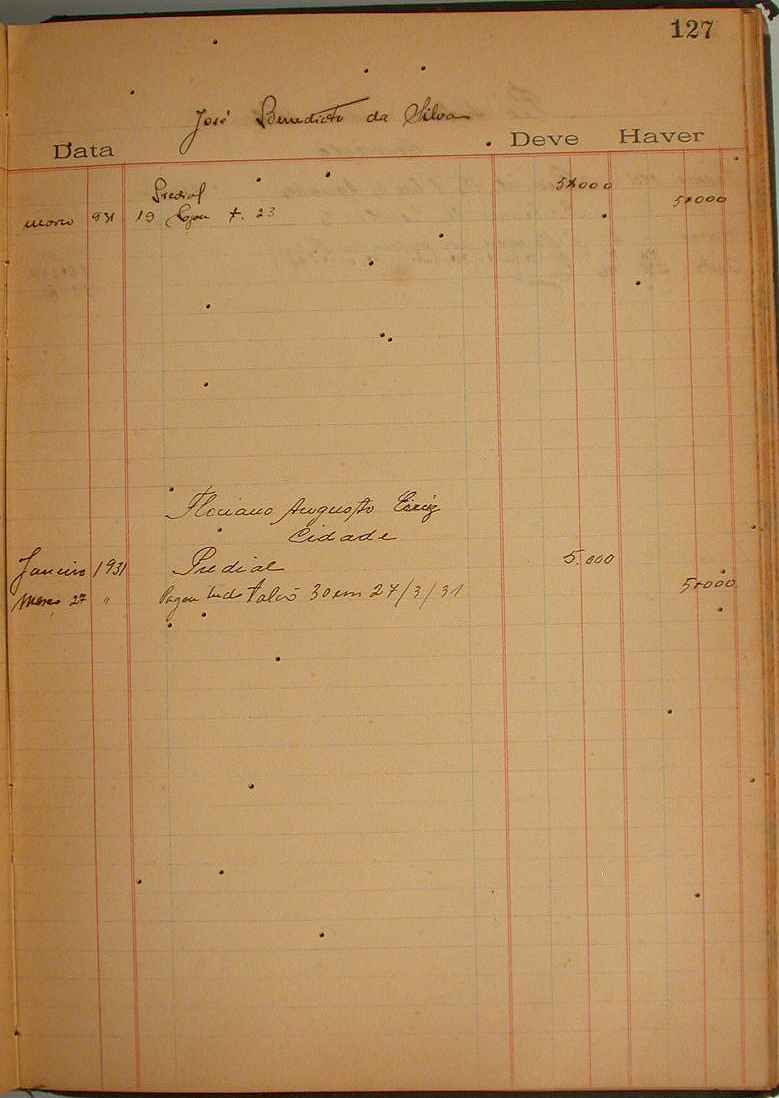 127
José Benedicto da Silva
Data Deve Haver
Predial 5$000
março 931 19 Pagou t. 23 5$000
Floriano Augusto
Cidade
Janeiro 1931 Predial 5.000
Março 27 " Pagou talão 30 em 27/3/31 5$000